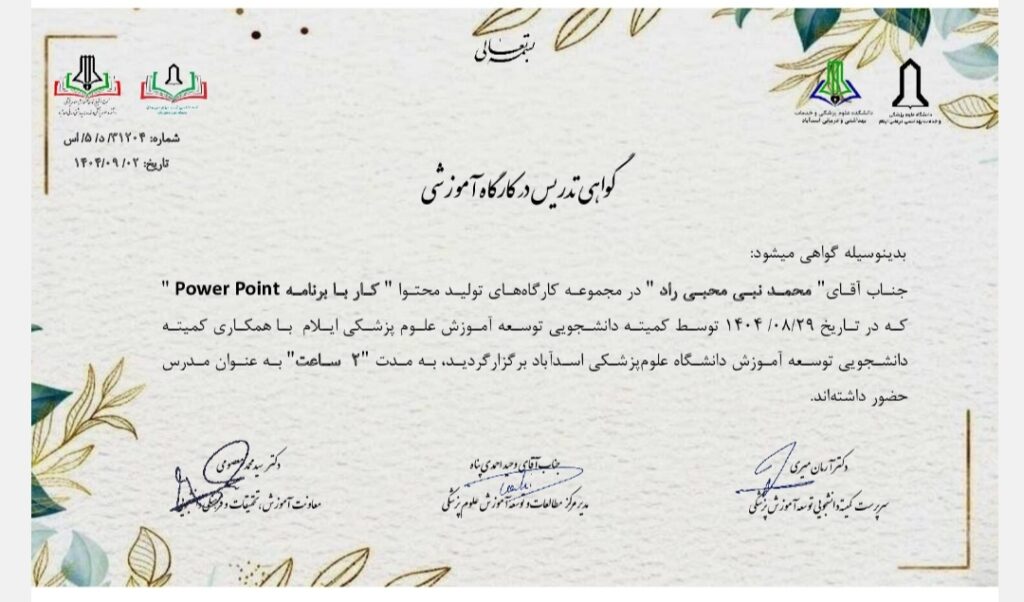 بسمه تعالی
دانشگاه علوم پزشکی
و خدمات بهداشتی درمانی ایلام
دانشکده علوم پزشکی و خدمات
بهداشتی و درمانی اسدآباد
شماره: ۳۱۲۰۴/ د/ ۵/ اس
تاریخ: ۰۲ /۱۴۰۴/۰۹
گواهی تدریس در کارگاه آموزشی
بدینوسیله گواهی میشود:
جناب آقای" محمد نبی محبی راد " در مجموعه کارگاه‌های تولید محتوا " کار با برنامه Power Point "
که در تاریخ ۱۴۰۴ /۰۸/۲۹ توسط کمیته دانشجویی توسعه آموزش علوم پزشکی ایلام با همکاری کمیته
دانشجویی توسعه آموزش دانشگاه علوم‌پزشکی اسدآباد برگزارگردید، به مدت "۲ ساعت" به عنوان مدرس
حضور داشته‌اند.
دکتر آرمان میری
سرپرست کمیته دانشجویی توسعه آموزش پزشکی
جناب آقای وحید احمدی پناه
مدیر مرکز مطالعات و توسعه آموزش علوم پزشکی
دکتر سید محمد معصومی
معاونت آموزش، تحقیقات و فرهنگی دانشجویی